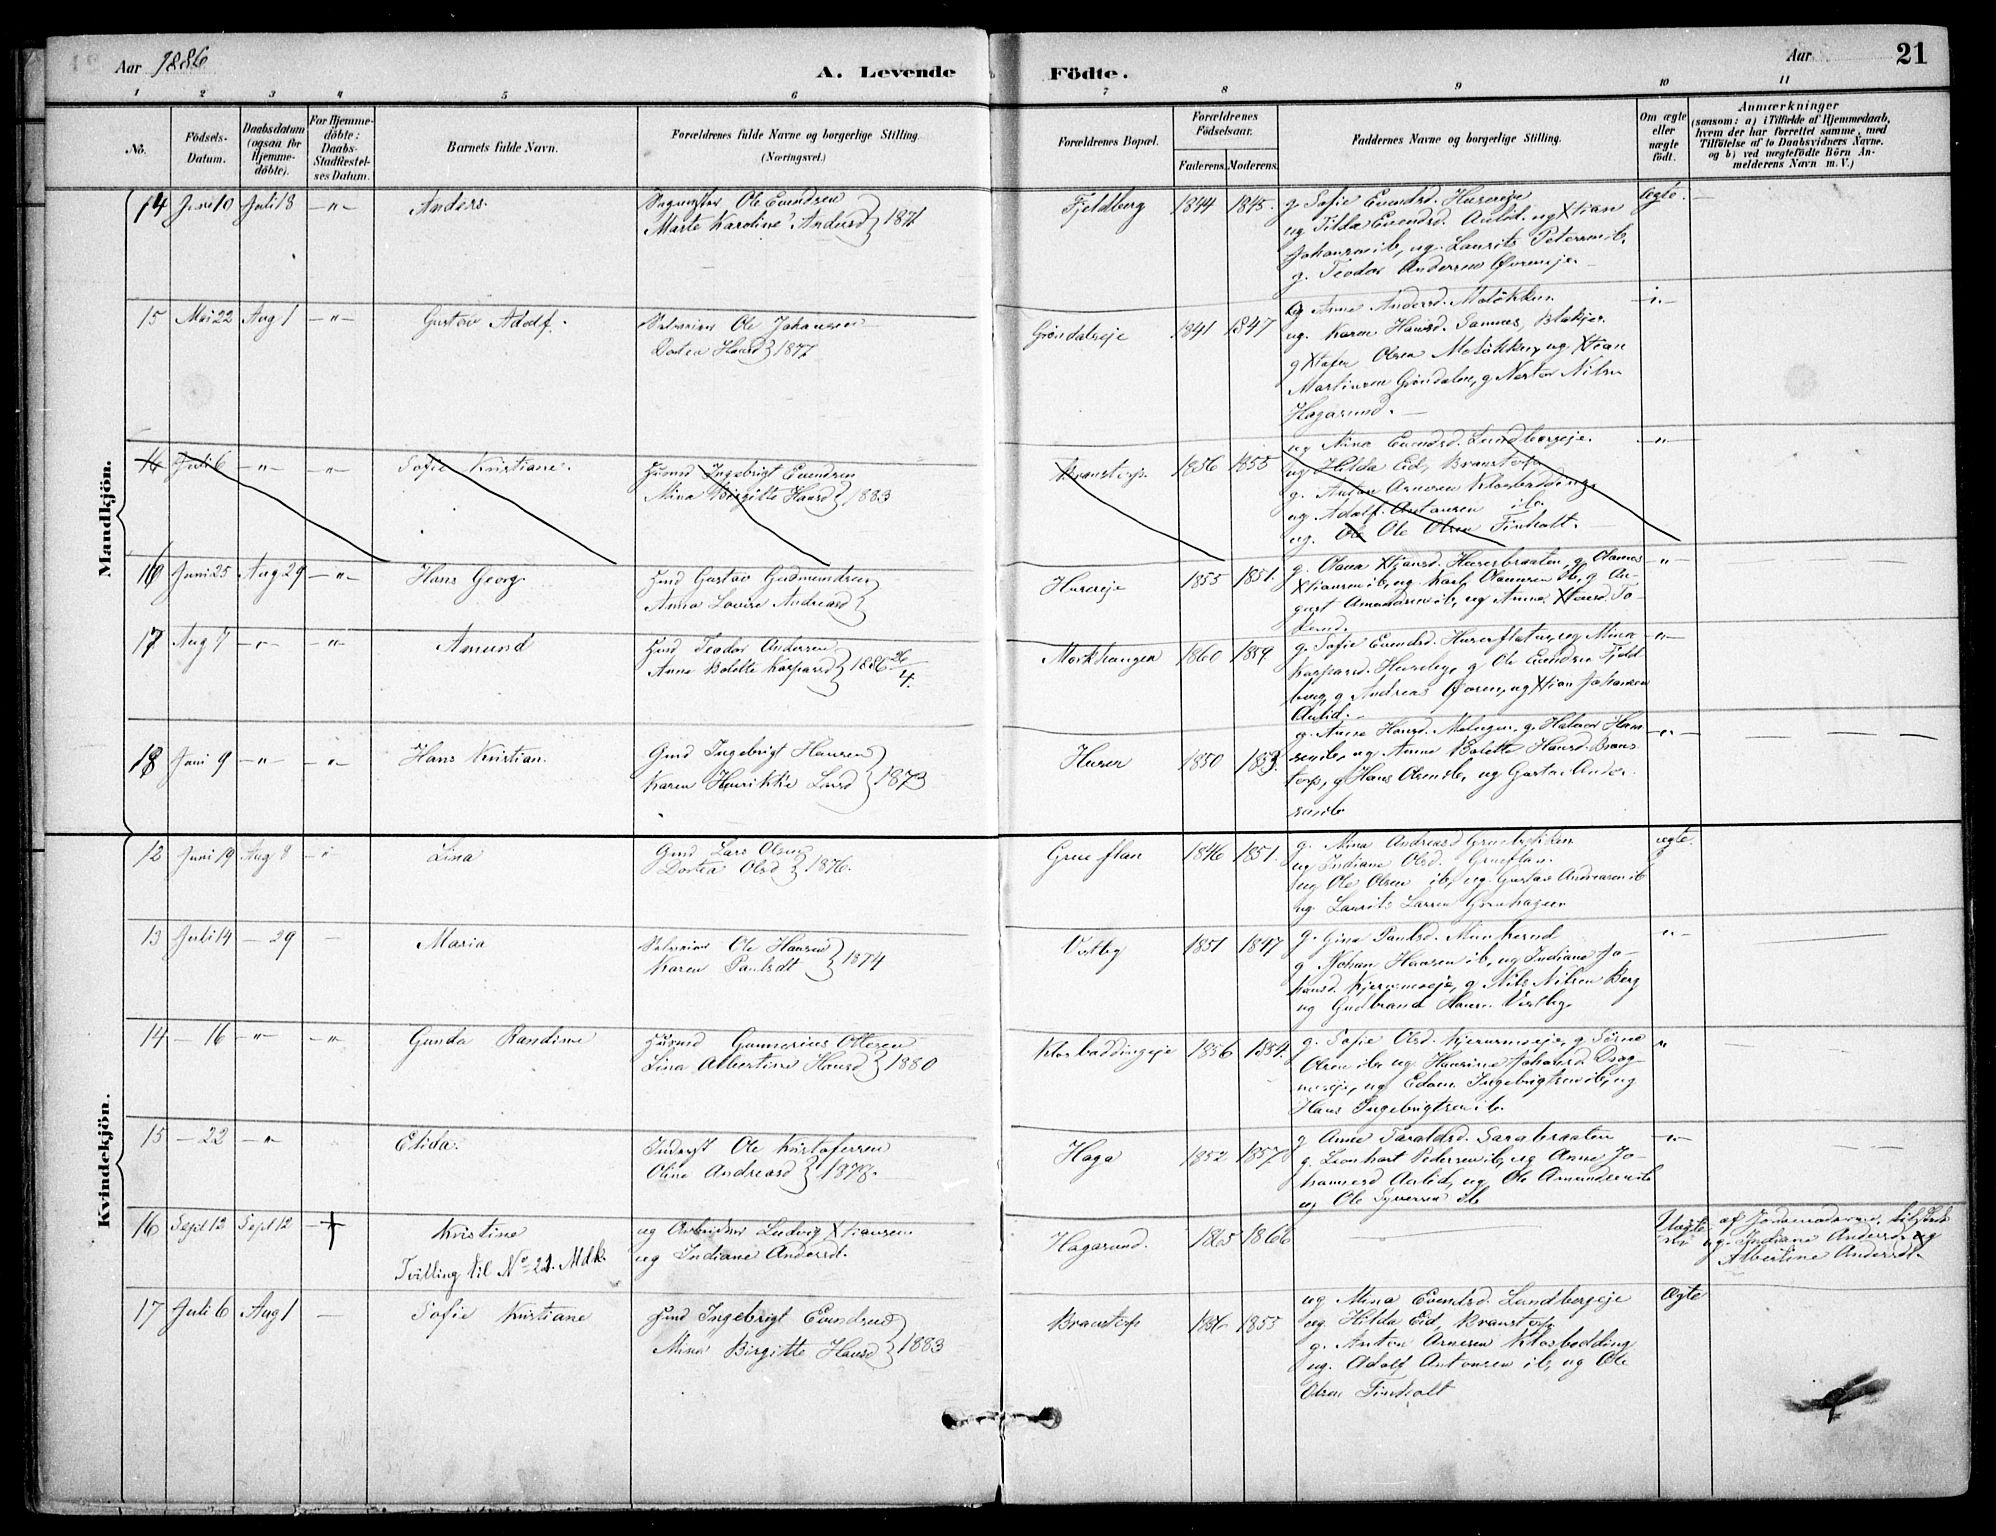 Aar 1886
A. Levende Födte.
Aar 21
1 2 3 4 5 6 7 8 9 10 11
No.
Födsels-Datum.
Daabsdatum (ogsaa for Hjemmedöbte).
For Hjemmedöbte: Daabs-Stadfæstelses Datum.
Barnets fulde Navn.
Forældrenes fulde Navne og borgerlige Stilling. (Næringsvei.)
Forældrenes Bopæl.
Forældrenes Födselsaar.
Faderens. Moderens.
Faddernes Navne og borgerlige Stilling.
Om ægte eller uægte födt.
Anmærkninger
(saasom: a) i Tilfælde af Hjemmedaab, hvem der har forrettet samme, med Tilföielse af to Daabsvidners Navne. og b) ved uægtefödte Börn Anmelderens Navn m. V.)
Mandkjön.
14 Juni 10 Juli 18 -"- Anders. Ole Evendsen
Marte Karoline Andersd } 1871
Fjeldberg 1844 1845. g Sofie Evendsd. Hurereje
ug Tilda Evendsd. Aulid. ug Xtian
Johansen ib, ug. Laurits Petersen ib,
g. Teodor Andersen Øvereneje
ægte.
15 Mai 22 Aug 1 -"- Gustav Adolf. Ole Johansen
Dortea Hansd } 1877
Gröndalseje 1841 1847 g Anne Andersd. Melökken
ug. Karen Hansd. Samnes, Blakjer.
g Xtofer Olsen Melökken, ug Xtian
Martinsen Gröndalen, g Nestor Nilsen
Hagarund.
16 Juli 6 -"- -"- Sofie Kristiane. Husmd Ingebrigt Evendsen
Mina Birgitte Hansd } 1883
Branstorp. 1856 1855 ug Mina Evendsd. Lundbergeje.
ug Hilda Eid, Branstorp
g. Anton Arnesen Klosbøddinge
ug Adolf Antonsen ib.
ug. Ole Ole Olsen Finholt.
16 Juni 25 Aug 29 -"- Hans Georg. Husmd Gustav Gudmundsen
Anna Lovise Andreasd }
Hurereje 1855 1851. g. Olava Xtiansd. Hurerbraaten, g Olaves
Xtiansen ib, ug Karl Olavesen ib, g August
Amundsen ib, ug Anne Hansd.
17 Aug 7 -"- -"- Amund Husmd Teodor Andersen
Anne Bolette Kaspersd } 1886 26/4.
Mørkhaugen 1860 1859 g. Sofie Evendsd. Hurerflaten, ug Mina
Kaspersd. Hureleje, g Ole Evendsen Fjeldberg,
g Andreas Øveren, ug Xtian Johansen
Aulid.
18 Juni 9 -"- -"- Hans Kristian. Gmd Ingebrigt Hansen
Karen Henrikke Larsd } 1873
Hurer 1850 1853. g. Anne Hansd. Melegen, g. Halvor Hansen
ib, ug Anne Bolette Hansd. Branstorp,
g Hans Olsen ib, ug Gustav Andersen
ib
Kvindekjön.
12 Juni 19 Aug 8 Lina Gmd Lars Olsen
Dortea Olsd } 1876.
Grueflan 1846 1851. g. Mina Andreasd
ug Indiane Olsd. Grueflan.
ug Ole Olsen ib, ug. Gustav Andreasen ib
ug. Laurits Larsen Gruehagen
ægte.
13 Juli 14 - 29 - Maria Ole Hansen
Karen Paulsdt } 1874
Vestby 1851 1847 g. Gina Paulsd. Munkerud
g Johan Hansen ib, ug Indiane Johansd.
Kjerremseje, g Nils Nilsen Berg
ug Gudbrand Hansen Vestby
14 - 16 -"- -"- Gunda Randine Husmd Gunnerius Ottesen
Lina Albertine Hansd } 1880
Klosbøddingeje 1856 1854. g. Sofie Olsd. Kjerremseje, g Sörine
Olsen ib, ug Hansine Johansd.
ug Edvin Ingebrigtsen ib, ug
Hans Ingebrigtsen ib.
15 - 22 -"- Elida. Inderst Ole Kristofersen
Oline Andreasd } 1878.
Haga 1852 1857. g Anne Taraldsd. Sarabraaten
g. Leonhart Pedersen ib, ug Anne Johannesd
Aulid, ug Ole Amundsen ib
ug Ole Syversen ib
16 Sept 12 Sept 12 + Kristine
Tvilling til No 21. Mdk.
ug Arbeider Ludvig Xtiansen
ug Indiane Andersdt.
Hagarund. 1865 1866 Uægte af Jordemoderen, tilstede
ug. Indiane Andersd. og
Albertine Andersdt.
17 Juli 6 Aug 1 - Sofie Kristiane Husmd Ingebrigt Evendsen
Mina Birgitte Hansd } 1883
Branstorp 1856 1855 ug Mina Evendsd. Lundbergeje
ug Hilda Eid, Branstorp
g. Anton Arnesen Klosbødding
ug. Adolf Antonsen ib, ug Ole
Olsen Finholt
Ægte